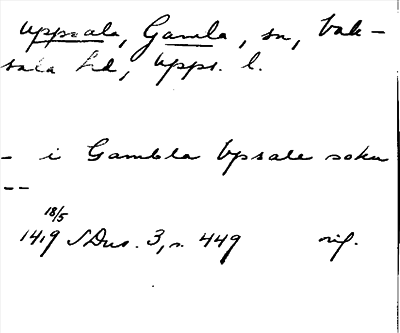 Uppsala, Gamla, sn, Vak-
sala hd, Upps. l.
- i Gambla Vpsale sokn
--
18/5
1419 SDns. 3, s. 449 orig.